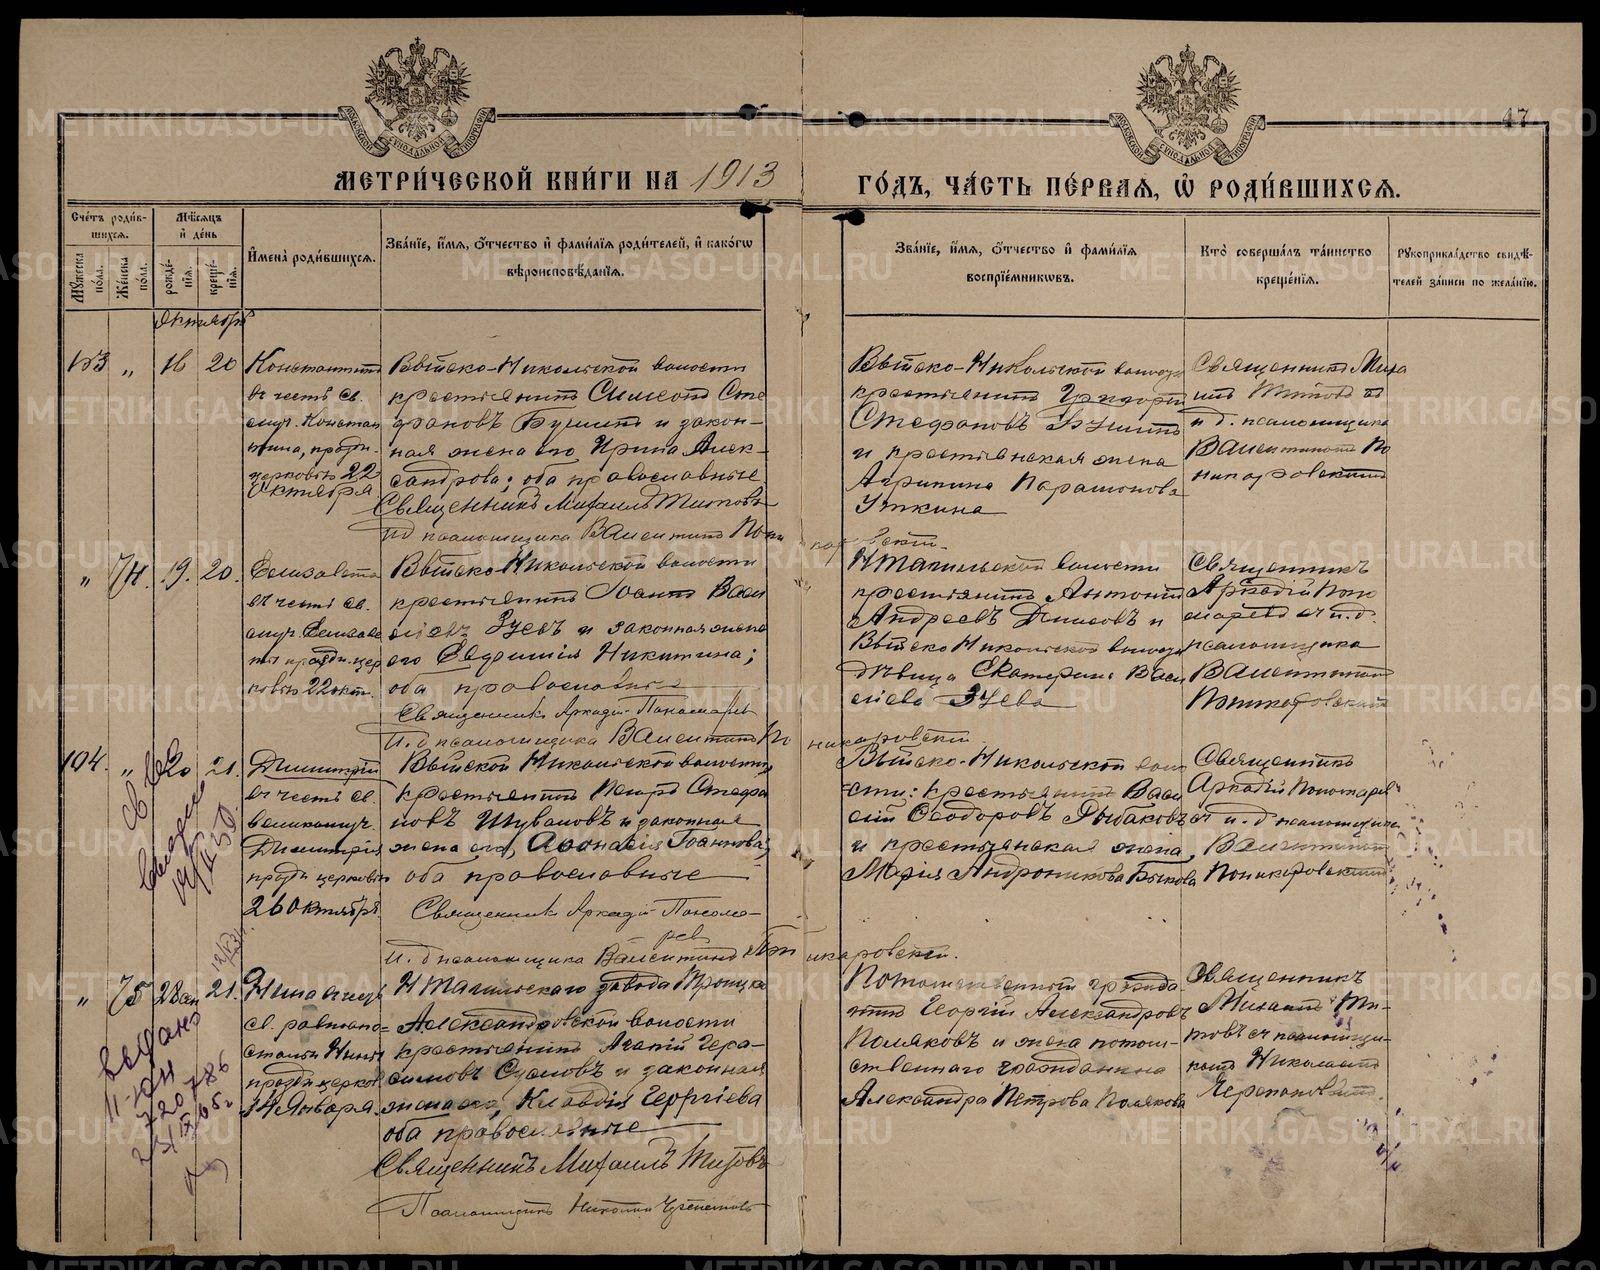 МЕТРИ́ЧЕСКОЙ КНИ́ГИ НА 1913 ГО́ДЪ, ЧА́СТЬ ПЕ́РВАЯ, Ѽ РОДИ́ВШИХСЯ.
47
Сче́тъ роди́в-
шихся.
Мѣ́сяцъ
и҆ де́нь
Му́жеска по́ла.
Же́нска по́ла.
рожде́-
нїя.
креще́-
нїя.
И҆мена̀ роди́вшихся.
Зва́нїе, и҆́мя, ѻ҆́тчество и҆ фами́лїя роди́телей, и҆ како́гѡ
вѣроисповѣ́данїя.
Зва́нїе, и҆́мя, ѻ҆́тчество и҆ фами́лїя
воспрїе́мникѡвъ.
Кто̀ соверша́лъ та́инство
креще́нїя.
Рꙋкоприкла́дство свидѣ́-
телей за́писи по жела́нїю.
Октября
103 " 16 20
Константинъ
въ честь св.
муч. Констан
тина, празд.
церковью 22
Октября
Выйско-Никольской волости
крестьянинъ Симеонъ Сте
фановъ Бушинъ и закон-
ная жена его Ирина Алек-
сандрова; оба православные
Священникъ Михаилъ Титовъ
И д псаломщика Валентинъ Поникаровскій.
Выйско-Никольской волости
крестьянинъ Григорій
Стефановъ Бушинъ
и крестьянская жена
Агрипина Парамонова
Уткина
Священникъ Миха
илъ Титовъ съ
и д. псаломщика
Валентиномъ По
никаровскимъ
" 74. 19. 20.
Елизавета
въ честь св.
муч. Елизаве
ты праздн. цер
ковью 22 окт.
Выйско-Никольской волости
крестьянинъ Іоаннъ Васи
ліевъ Зуевъ и законная жена
его Евфимія Никитина;
оба православные
Священникъ Аркадій Пономаревъ
И. д псаломщика Валентинъ Поникаровскій
Н Тагильской волости
крестьянинъ Антоній
Андреевъ Денисовъ и
Выйско Никольской волости
дѣвица Екатерина Васи
ліева Зуева
Священникъ
Аркадій Поно
маревъ съ и.д.
псаломщика
Валентиномъ
Поникаровскимъ
104. " 20 21.
Димитрій
въ честь св.
великомуч.
Димитрія
празд церковью
26 Октября.
Выйской Никольской волости
крестьянинъ Петръ Стефа
новъ Шуваловъ и законная
жена его, Аѳанасія Іоаннова;
оба православные
Священникъ Аркадій Понома-
ревъ
И. д псаломщика Валентинъ Поникаровскій.
Выйско-Никольской воло
сти: крестьянинъ Васи
лій Ѳеодоровъ Рыбаковъ
и крестьянская жена
Марія Андроникова Быкова
Священникъ
Аркадій Пономарев
съ и. д псаломщика
Валентиномъ
Поникаровскимъ
" 75 21.
Нина въ честь
св. равноапо-
стольн Нины
празд церков
14 Января.
Н Тагильскаго завода Троицко
Александровской волости
крестьянинъ Агапій Гера-
симовъ и законная
жена его, Клавдія Георгіева
оба православные
Священникъ Михаилъ Титовъ
Псаломщикъ Николай Черепановъ
Потомственный гражда-
нинъ Георгій Александровъ
Поляковъ и жена потом-
ственнаго гражданина
Александра Петрова Полякова
Священникъ
Михаилъ Ти-
товъ съ псаломщи-
комъ Николаемъ
Черепановымъ.
METRIKI.GASO-URAL.RU